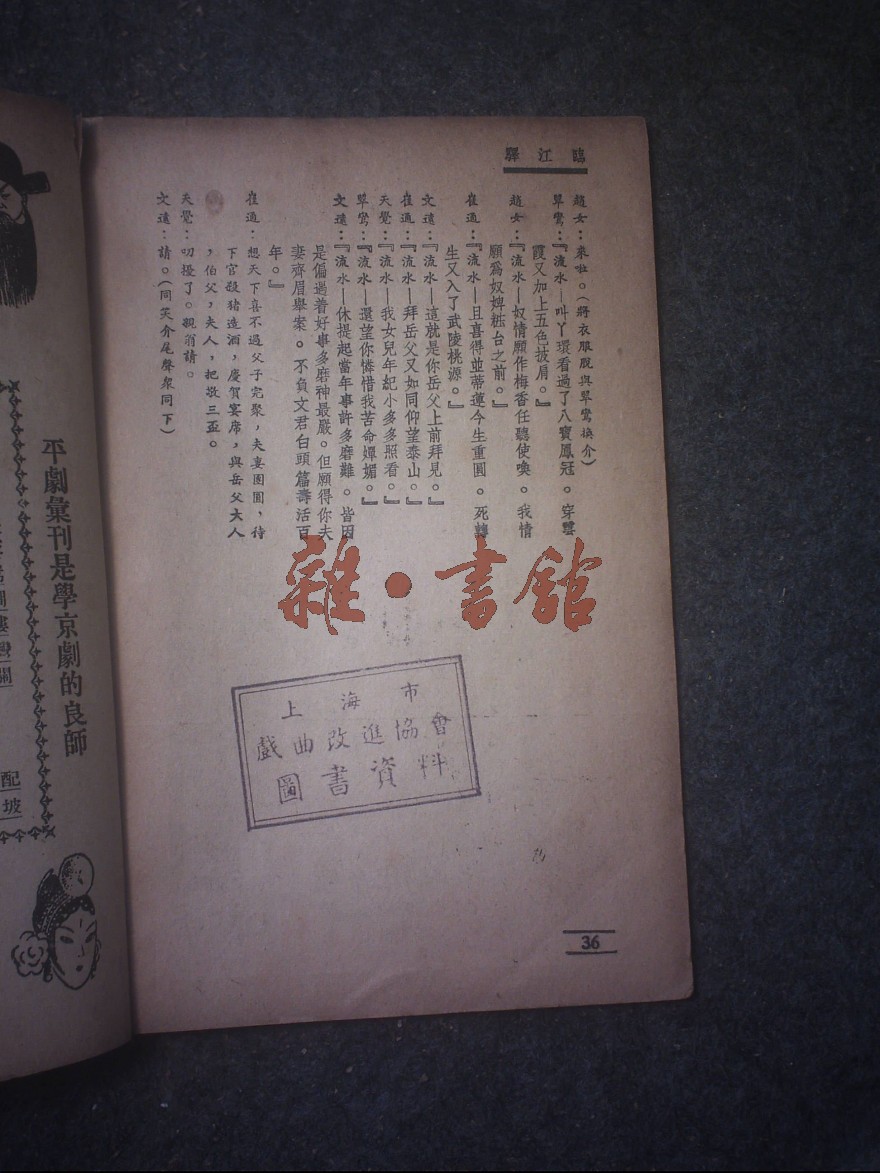 臨江驛
趙女：來啦。（將衣服脫與翠鸞換介）
翠鸞：『流水—叫丫環看過了八寶鳳冠。穿雲
霞又加上五色披肩。』
趙女：『流水—奴情願作梅香任聽使喚。我情
願爲奴婢粧台之前。』
崔通：『流水—且喜得並蒂蓮今生重圓。死轉
生又入了武陵桃源。』
文遠：『流水—這就是你岳父上前拜見。』
崔通：『流水—拜岳父又如同仰望泰山。』
天覺：『流水—我女兒年紀小多多照看。』
翠鸞：『流水—還望你憐惜我苦命嬋媚。』
文遠：『流水—休提起當年事許多磨難。皆因
是偏遇着好事多磨神最嚴。但願得你夫
妻齊眉舉案。不負文君白頭篇壽活百
年。』
崔通：想天下喜不過父子完聚，夫妻團圓，待
下官殺猪造酒，慶賀宴席，與岳父大人
，伯父，夫人，把敬三盃。
天覺：叨擾了。親翁請。
文遠：請。（同笑介尾聲衆同下）
雜·書館
上海市
戲曲改進協會
圖書資料
36
平劇彙刊是學京劇的良師
配
坡